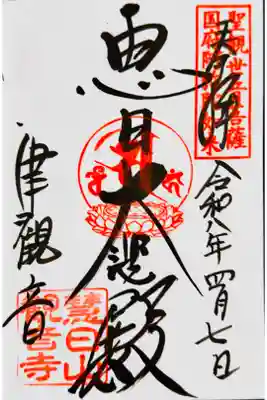 奉拝
令和八年四月七日
聖観世音菩薩
国府阿弥陀如来
恵日大悲殿
津観音
恵日山
観音寺